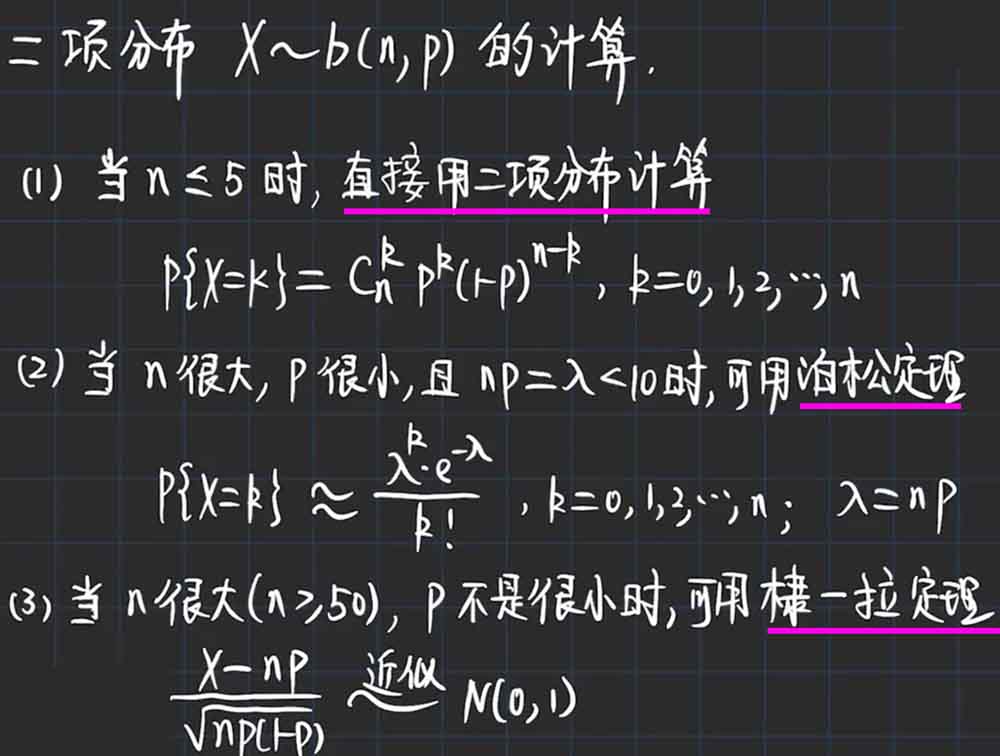 二项分布 X～b(n,p) 的计算.
(1) 当 n≤5 时, 直接用二项分布计算
P{X=k}=Cₙᵏ pᵏ(1-p)ⁿ⁻ᵏ, k=0,1,2,…,n
(2) 当 n很大, p很小,且 np=λ<10时,可用泊松定理
P{X=k} ≈ λᵏ·e^(-λ)/k! , k=0,1,2,…,n; λ=np
(3) 当 n很大(n≥50), p不是很小时,可用棣一拉定理
(X-np)/√(np(1-p)) 近似～ N(0,1)